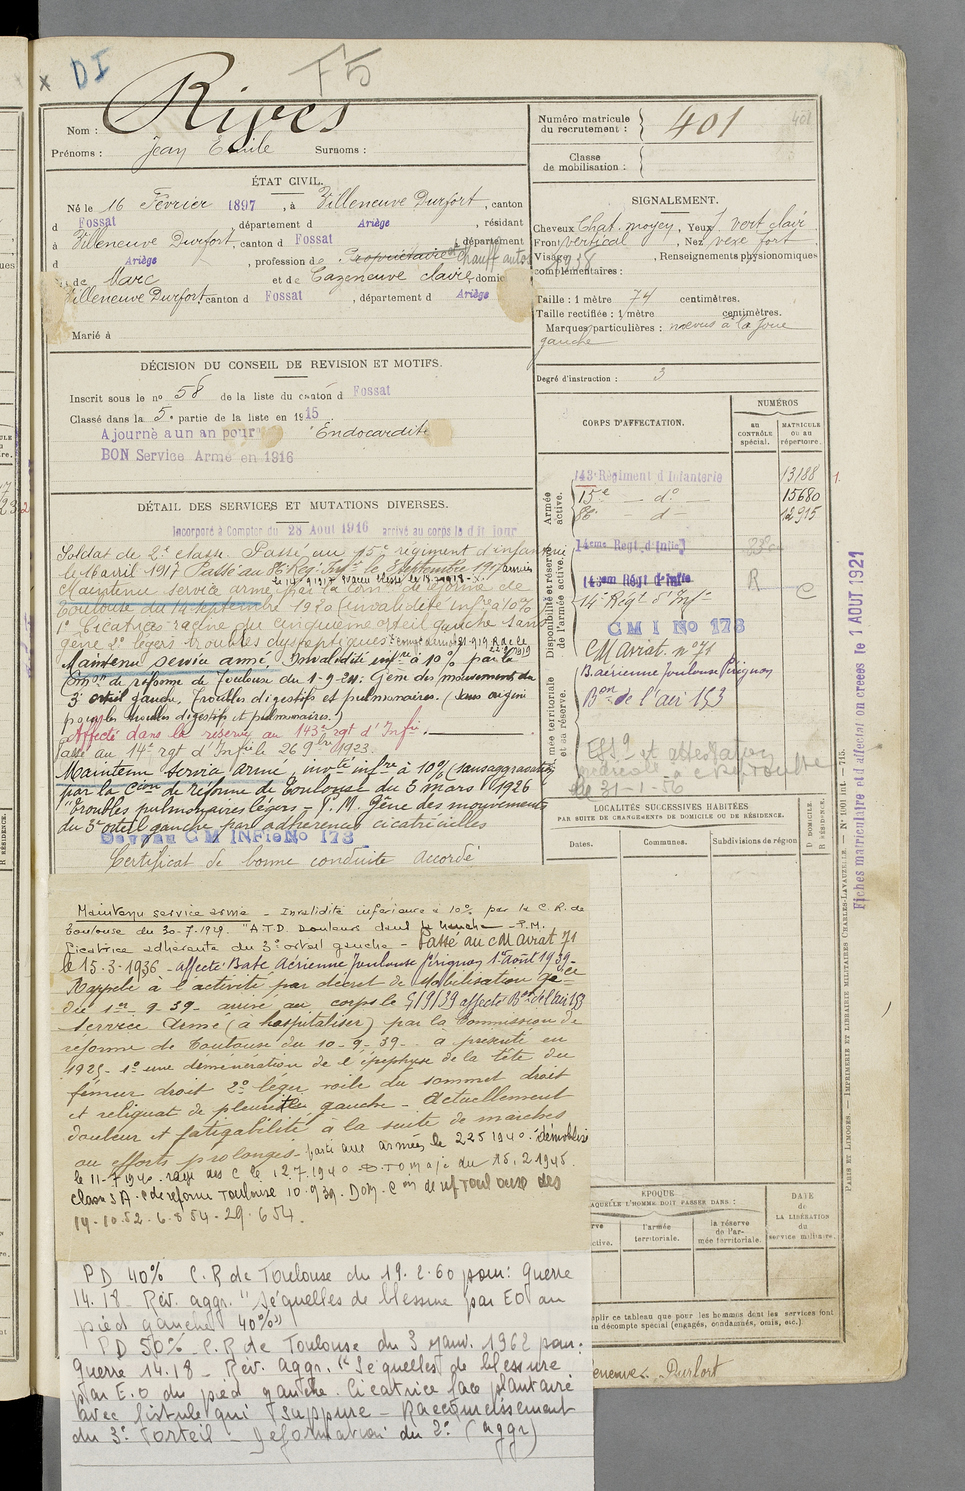 DI
F5
Nom : Rives
Prénoms : Jean Emile Surnoms :
Numéro matricule du recrutement : 401
401
Classe de mobilisation :
ÉTAT CIVIL.
Né le 16 Février 1897, à Villeneuve Durfort, canton
d Fossat département d Ariège, résidant
à Villeneuve Durfort, canton d Fossat, département
d Ariège, profession de Propriétaire Chauff autos
de Marc et de Cazeneuve Claire, domic
Villeneuve Durfort canton d Fossat, département d Ariège
Marié à
SIGNALEMENT.
Cheveux Chat. moyen, Yeux vert clair
Front vertical, Nez vexe fort
Visage, Renseignements physionomiques
complémentaires :
Taille : 1 mètre 74 centimètres.
Taille rectifiée : 1 mètre centimètres.
Marques particulières : nœvus à la joue
gauche
Degré d'instruction : 3
DÉCISION DU CONSEIL DE REVISION ET MOTIFS.
Inscrit sous le no 58 de la liste du canton d Fossat
Classé dans la 5e partie de la liste en 1915
Ajourné a un an pour Endocardite
BON Service Armé en 1916
CORPS D'AFFECTATION.
NUMÉROS
au CONTRÔLE spécial.
MATRICULE ou au répertoire.
Armée active.
143e Régiment d'Infanterie 13188
15e — do — 15680
8e — d — 12915
Disponibilité et réserve de l'armée active.
14eme Regt d'Inf
143em Regt d'Inf R C
14e Régt d'Infie
GMI No 178
CM Aviat. no 71
B. aérienne Toulouse Pirignon
Bon de l'air 153
Armée territoriale et sa réserve.
et attestation
médicale
le 31-1-56
DÉTAIL DES SERVICES ET MUTATIONS DIVERSES.
Incorporé à Compter du 28 Aout 1916 arrivé au corps le dit jour
Soldat de 2e classe. Passé au 15e régiment d'infanterie
le 16 avril 1917 Passé au 8e Reg. Infie le 8 septembre 1917
Maintenu service armé par la Com de réforme de
Toulouse du 14 septembre 1920 (invalidité infre à 10%)
1o Cicatrices racine du cinquième orteil gauche sans
gêne 2o légers troubles dyspeptiques
Maintenu service armé. Invalidité infre à 10% par la
Comon de réforme de Toulouse du 1-9-21. Gêne des mouvements du
3e orteil gauche, troubles digestifs et pulmonaires. (sans origine
pour les troubles digestifs et pulmonaires.)
Affecté dans la réserve au 143e rgt d'Infie
Passé au 14e rgt d'Infie le 26 9bre 1923.
Maintenu service armé, invté infre à 10% (sans aggravation)
par la Con de réforme de Toulouse du 5 mars 1926
"Troubles pulmonaires légers - P.M. Gêne des mouvements
du 3e orteil gauche par adhérences cicatricielles
GM INFie No 178
Certificat de bonne conduite accordé
LOCALITÉS SUCCESSIVES HABITÉES
PAR SUITE DE CHANGEMENTS DE DOMICILE OU DE RÉSIDENCE.
Dates. Communes. Subdivisions de région
D DOMICILE. R RÉSIDENCE.
Fiches matriculaire et d'affectation créées le 1 AOUT 1921
PARIS ET LIMOGES. — IMPRIMERIE ET LIBRAIRIE MILITAIRES CHARLES-LAVAUZELLE.
Maintenu service armé - Invalidité inférieure à 10% par la C.R. de
Toulouse du 30-7-1929. "A.T.D. douleurs dans la hanche - P.M.
Cicatrice adhérente du 3e orteil gauche - Passé au CM Aviat 71
le 15-3-1936 - affecté Base Aérienne Toulouse Pirignon 1er août 1939-
Rappelé à l'activité par décret de Mobilisation gale
du 1er-9-39- arrivé au corps le 5/9/39 affecté Bon de l'air 153
Service Armé (à hospitaliser) par la Commission de
réforme de Toulouse du 10-9-39- a présenté en
1925- 1o une dégénération de l'épiphyse de la tête du
fémur droit 2o léger voile du sommet droit
et reliquat de pleurite gauche - Actuellement
douleur et fatigabilité à la suite de marches
ou efforts prolongés - parti aux armées le 22 5 1940. démobilisé
le 11-7-1940. rayé des C le 12.7.1940
classé SA. C de réforme Toulouse 10-9-39. Dom. Con de ref Toulouse des
14-10-52. 6-8-54-29-6-54.
ÉPOQUE
À LAQUELLE L'HOMME DOIT PASSER DANS :
l'armée territoriale.
la réserve de l'armée territoriale.
DATE de LA LIBÉRATION du service militaire.
plir ce tableau que pour les hommes dont les services font
un décompte spécial (engagés, condamnés, omis, etc.).
PD 40% C.R de Toulouse du 19.2.60 pour: Guerre
14.18 - Rév. aggr. "Séquelles de blessure par EO au
pied gauche 40%"
PD 50% - C.R de Toulouse du 3 janv. 1962 pour:
guerre 14.18 - Rév. Aggr. "Séquelles de blessure
par E.O du pied gauche. Cicatrice face plantaire
avec fistule qui suppure - Raccourcissement
du 3e orteil - Déformation du 2e (aggr)
eneuve Durfort